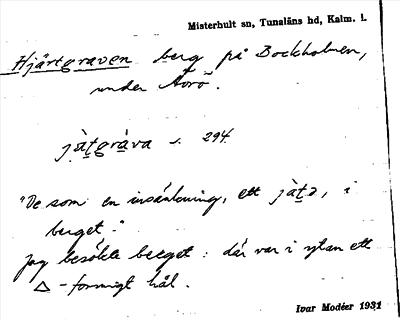 Misterhult sn, Tunaläns hd, Kalm. l.
Hjärtgraven berg på Bockholmen,
under Ävrö.
jàt̲gràva s. 294.
"De som en insänkning, ett jàt̲ə, i
berget."
Jag besökte berget: där var i ytan ett
△-formigt hål.
Ivar Modéer 1931